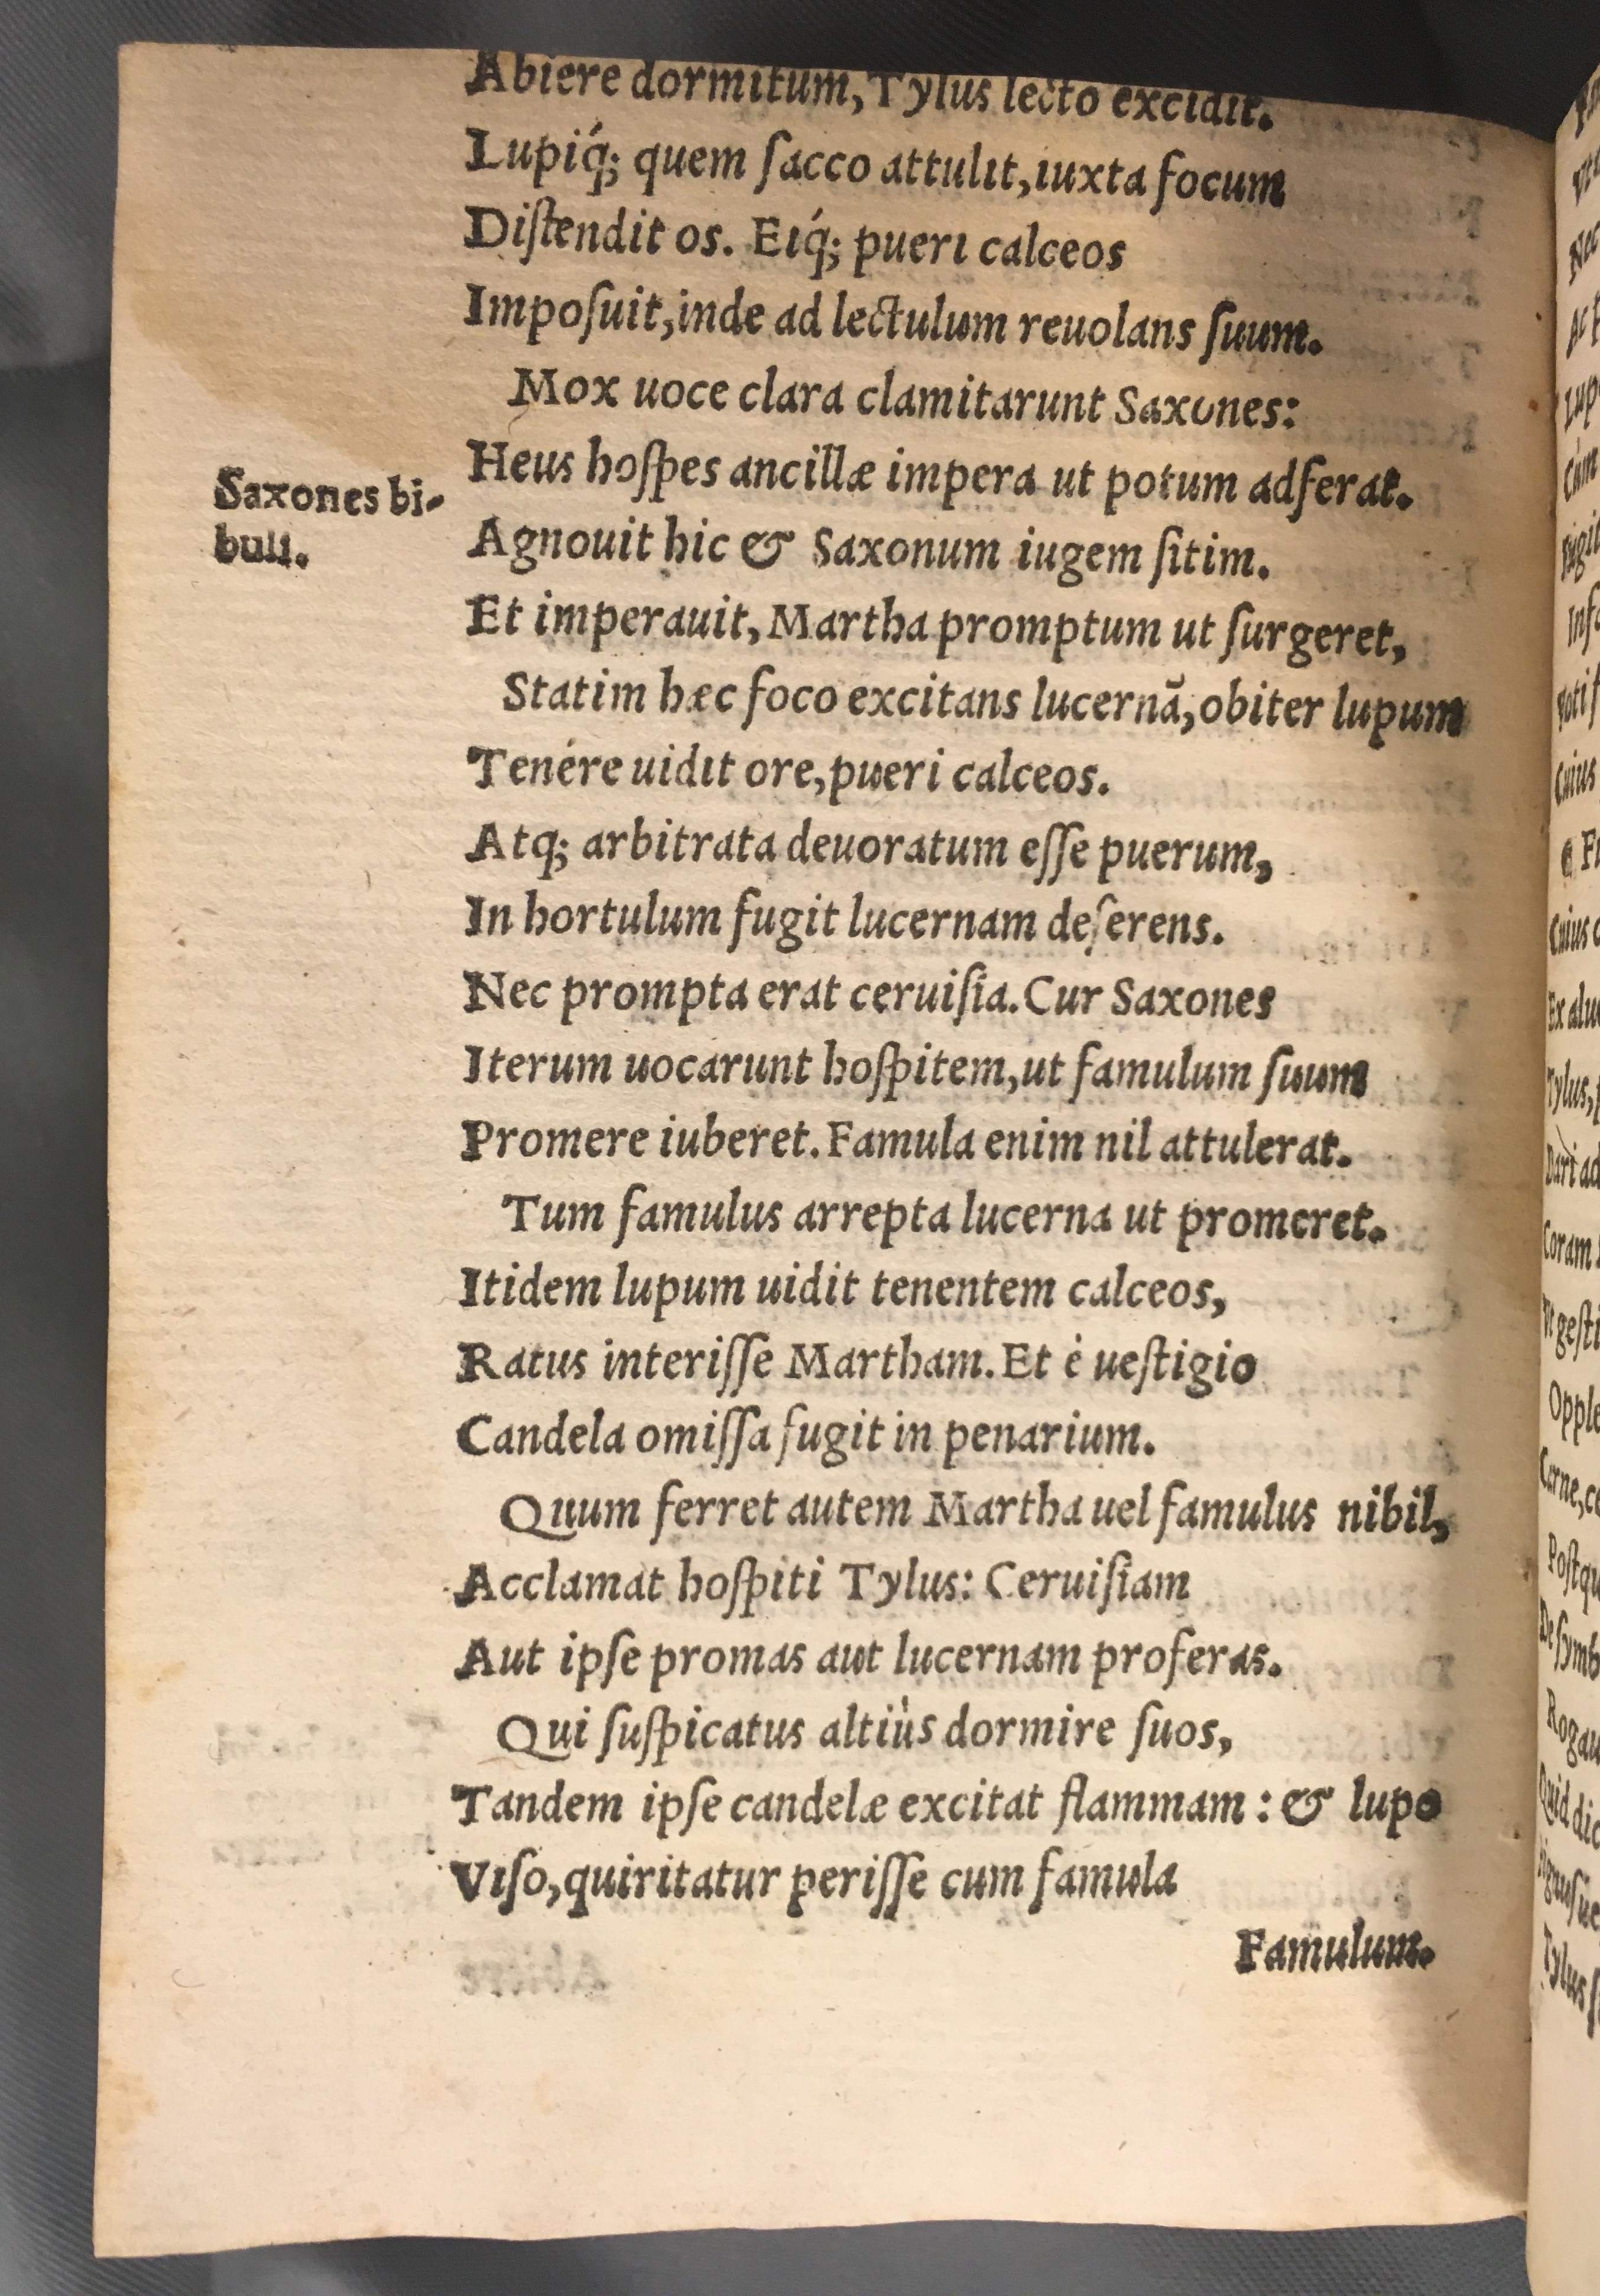 Abiere dormitum, Tylus lecto excidit.
Lupiq́; quem ſacco attulit, iuxta focum
Diſtendit os. Eiq́; pueri calceos
Impoſuit, inde ad lectulum reuolans ſuum.
Mox uoce clara clamitarunt Saxones:
Heus hoſpes ancillæ impera ut potum adferat.
Saxones bi-
buli.
Agnouit hic & Saxonum iugem ſitim.
Et imperauit, Martha promptum ut ſurgeret,
Statim hæc foco excitans lucernā, obiter lupum
Tenére uidit ore, pueri calceos.
Atq; arbitrata deuoratum eſſe puerum,
In hortulum fugit lucernam deſerens.
Nec prompta erat ceruiſia. Cur Saxones
Iterum uocarunt hoſpitem, ut famulum ſuum
Promere iuberet. Famula enim nil attulerat.
Tum famulus arrepta lucerna ut promeret.
Itidem lupum uidit tenentem calceos,
Ratus interiſſe Martham. Et è ueſtigio
Candela omiſſa fugit in penarium.
Quum ferret autem Martha uel famulus nihil,
Acclamat hoſpiti Tylus: Ceruiſiam
Aut ipſe promas aut lucernam proferas.
Qui ſuſpicatus altiùs dormire ſuos,
Tandem ipſe candelæ excitat flammam: & lupo
Viſo, quiritatur periſſe cum famula
Famulum.